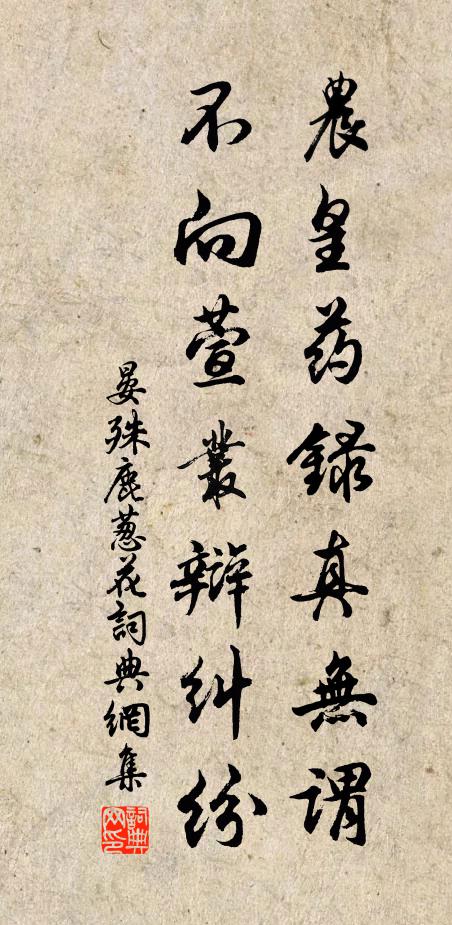 農皇药録真無謂
不向萱叢辯糾紛
晏殊鹿葱花詞典網集
詞典網印